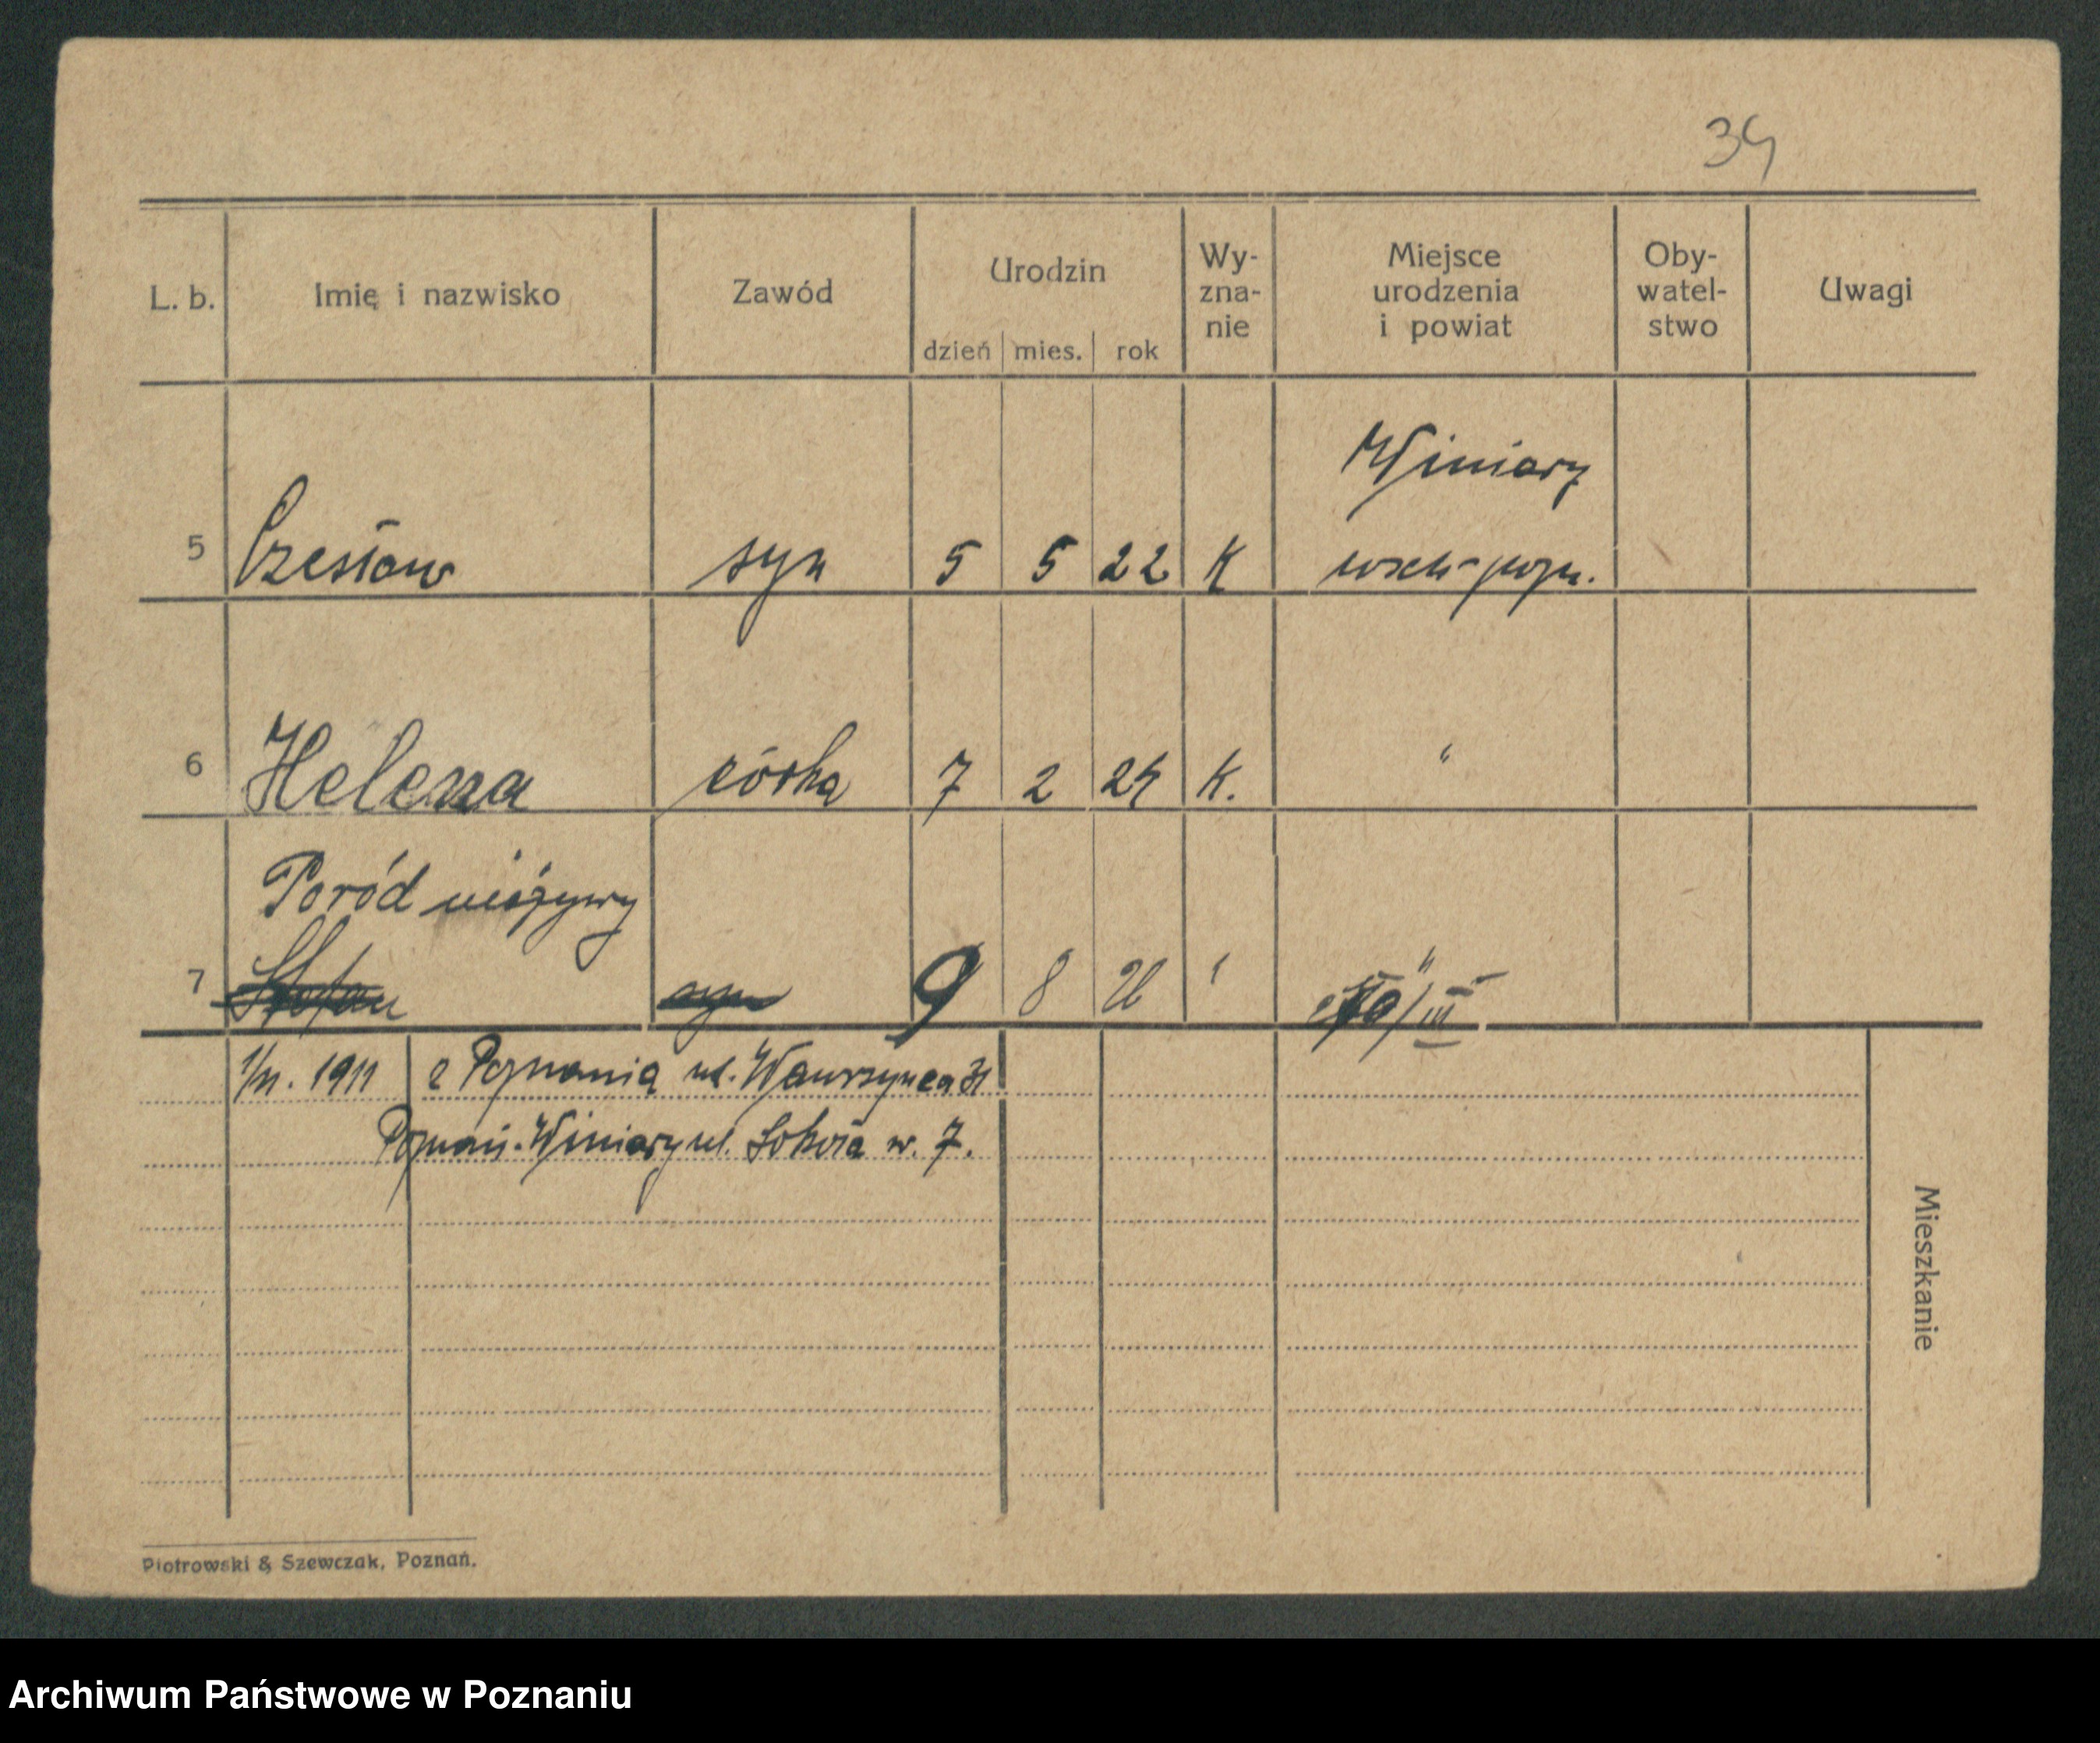 34
L. b. Imię i nazwisko Zawód Urodzin dzień mies. rok Wy-zna-nie Miejsce urodzenia i powiat Oby-watel-stwo Uwagi
Winiary
5 Czesław syn 5 5 22 K wsch-pozn.
6 Helena córka 7 2 24 K. "
Poród nieżywy
7 Stefan syn 9 8 26 ' "
1/11. 1911 z Poznania ul. Wawrzyńca 31
Poznań-Winiary ul. Sokoła nr. 7.
Mieszkanie
Piotrowski & Szewczak, Poznań.
Archiwum Państwowe w Poznaniu